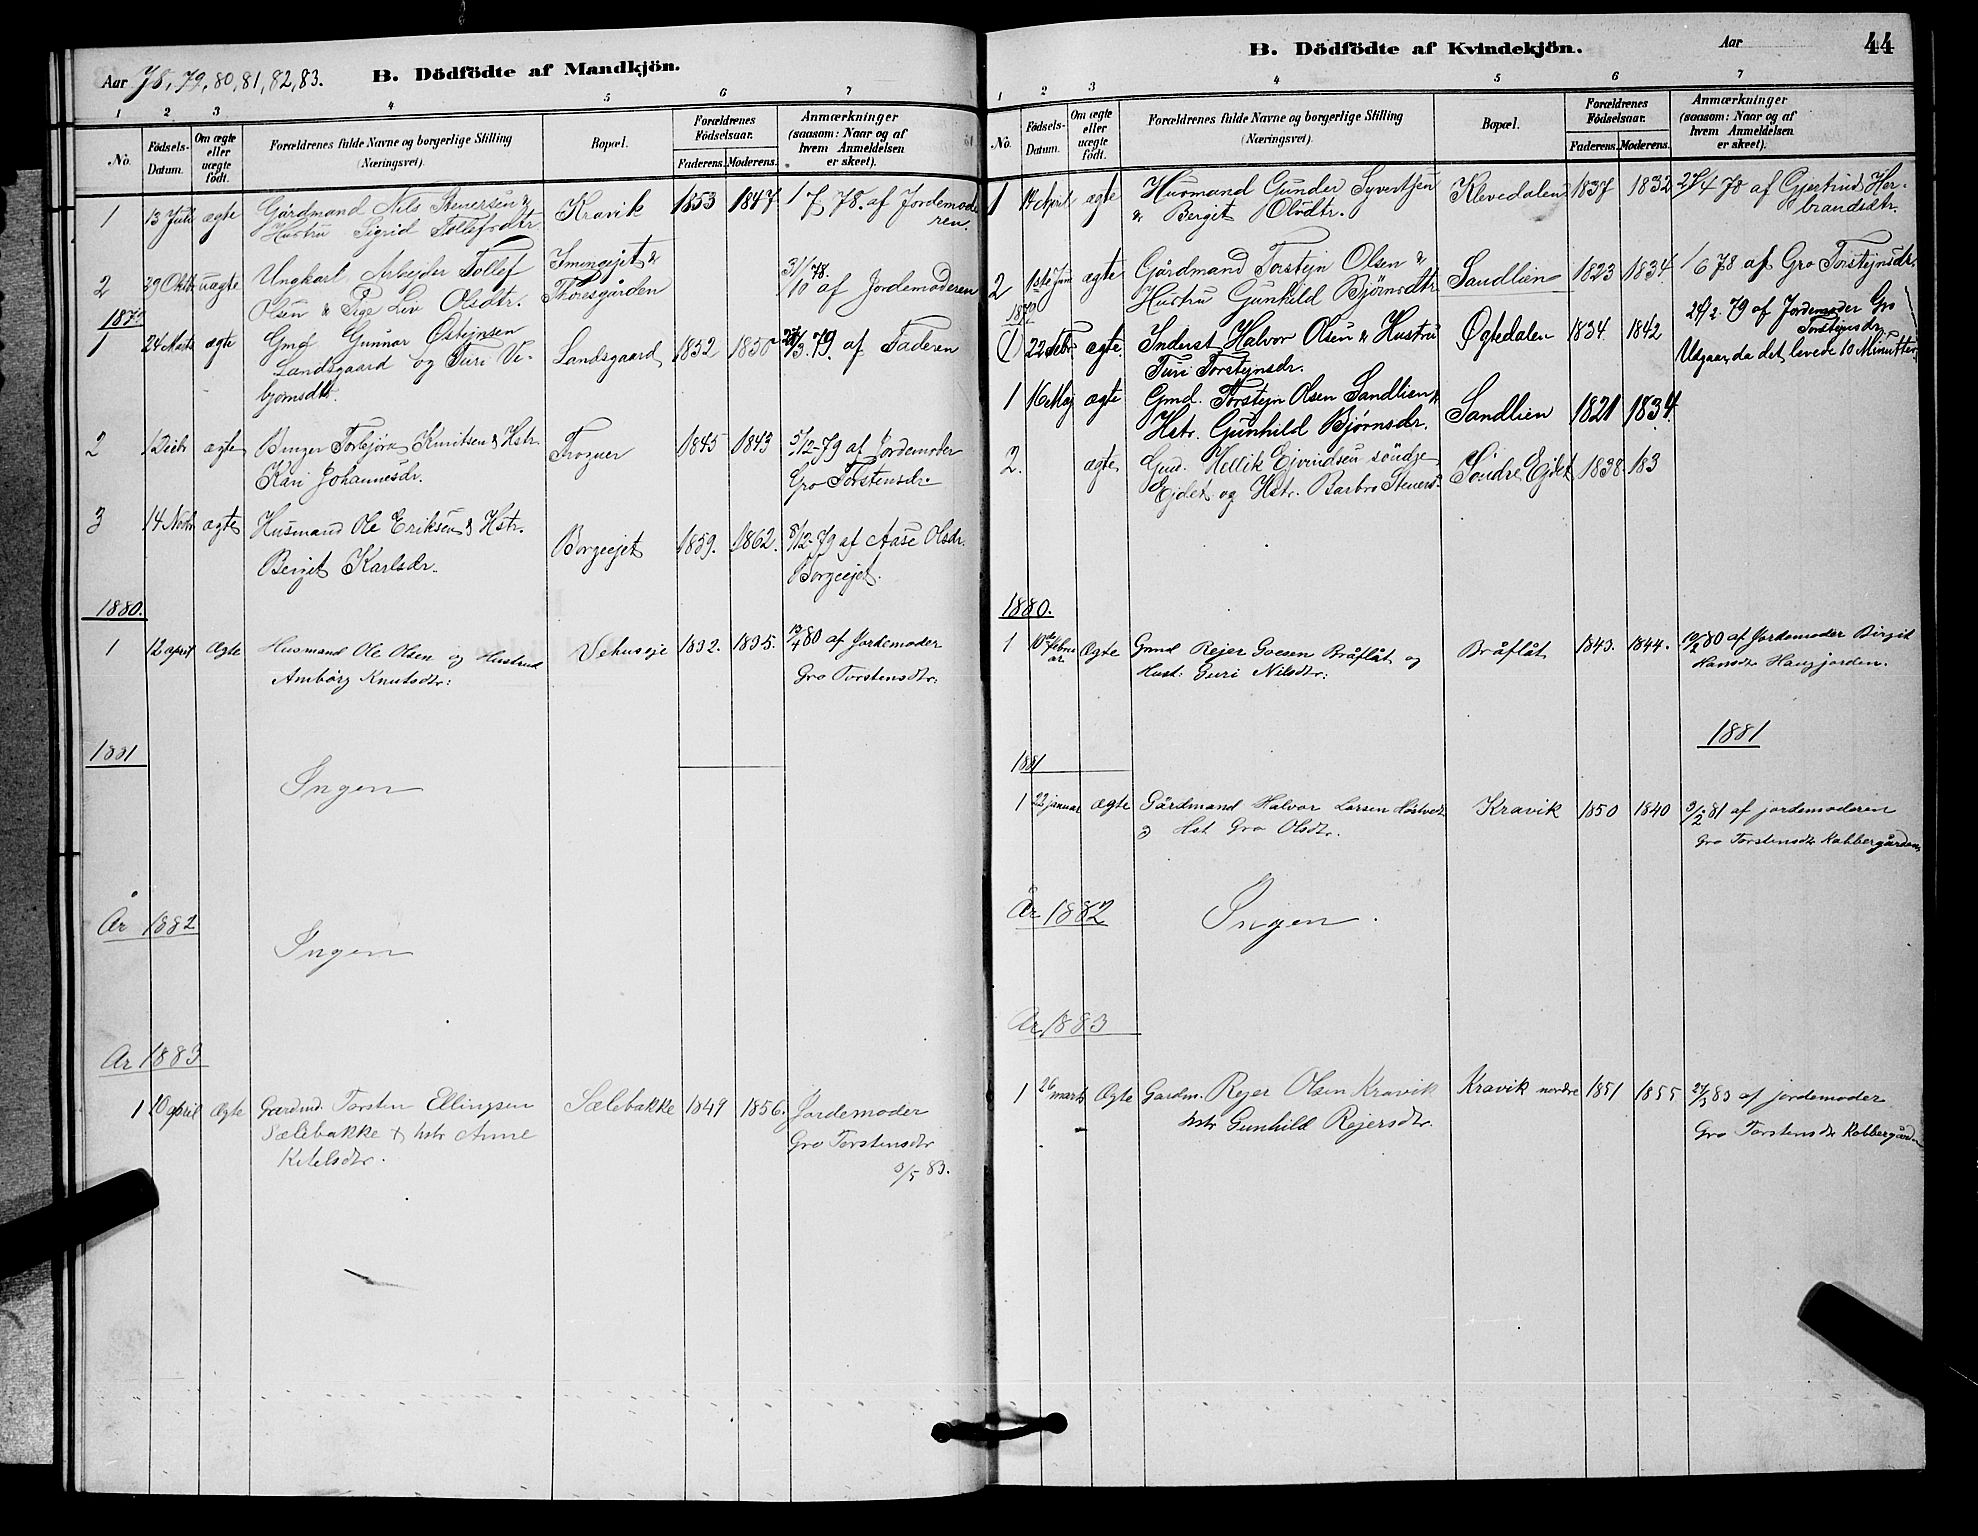 Aar 78, 79, 80, 81, 82, 83. B. Dödfödte af Mandkjön.
1 2 3 4 5 6 7
No. Födsels-Datum. Om ægte eller uægte födt. Forældrenes fulde Navne og borgerlige Stilling (Næringsvei). Bopæl. Forældrenes Födselsaar. Faderens. Moderens. Anmærkninger (saasom: Naar og af hvem Anmeldelsen er skeet).
1 13 Juli ægte Gårdmand Nils Stenersen & Kravik 1853 1847 1/7 78. af Jordemode
Hustru Sigrid Tollefsdtr ren.
2 29 Oktbr uægte Ungkarl Arbejder Tollef Imingejet & 31/10 78.
Olsen & Pige Liv Olsdtr. Thoresgården af Jordemoderen
1879
1 24 Marts ægte Gmd Gunnar Østejnsen Landsgaard 1852 1850 79. af Faderen
Landsgaard og Turi Ve-
bjørnsdtr.
2 1 Decbr ægte Bruger Torbjørn Knutsen & Hstr. Frogner 1845 1843 5/12-79 af Jordemoder
Kari Johannesdr. Gro Torstensdr.
3 14 Novbr ægte Husmand Ole Eriksen & Hstr. Borgeejet 1859. 1862. 8/12-79 af Aase Olsdr.
Beret Karlsdr. Borgeejet.
1880.
1 12 april Ægte Husmand Ole Olsen og Hustrud Vehuseje 1832. 1835. 80 af Jordemoder
Ambörg Knutsdtr: Gro Torstensdtr:
1881
Ingen
År 1882
Ingen
Ar 1883
1 20 april Ægte Gaardmd. Torsten Ellingsen Sælebakke 1849 1856. Jordemoder
Sælebakke & hstr Anne Gro Torstensdtr
Ketelsdtr. 3/5 83.
B. Dödfödte af Kvindekjön. Aar 44
1 2 3 4 5 6 7
No. Födsels-Datum. Om ægte eller uægte födt. Forældrenes fulde Navne og borgerlige Stilling (Næringsvei). Bopæl. Forældrenes Födselsaar. Faderens. Moderens. Anmærkninger (saasom: Naar og af hvem Anmeldelsen er skeet).
1 14 April ægte Husmand Gunder Syvertsen Klevedalen 1837 1832 27/4 78 af Gjertrud Her-
& Bergit Olsdtr. brandsdtr.
2 1ste Juni ægte Gårdmand Torstejn Olsen & Sandlien 1823 1834 1/6 78 af Gro Torstejnsdr.
Hustru Gunhild Bjørnsdtr.
1879
(1) 22 Febr. ægte. Inderst Halvor Olsen & Hustru Øgtedalen 1834. 1842 24/2-79 af Jordemoder Gro
Turi Torstejnsdr. Torstejnsdr.
Udgaar, da det levede 10 Minutter
1 16 Maj ægte Gmd. Torstejn Olsen Sandlien & Sandlien 1821 1834.
Hstr. Gunhild Bjørnsdr.
2. ægte Gmd. Hellik Ejvindsen söndre Söndre Ejdet 1838 183
Ejdet og Hstr. Barbro Stenersd.
1880.
1 10de februar Ægte Gmd Rejer Svesen Bråflåt og Bråflåt 1843. 1844. 80 af Jordemoder Birgit
Hust: Guri Nilsdtr: Hansdtr Haugjorden.
1881
1881
1 22 januar ægte Gårdmand Halvor Larsen Høstvedt Kravik 1850 1840 9/2 81 af jordemoderen
& Hst Gro Olsdtr. Gro Torstensdtr Kobbergården
År 1882 Ingen.
Ar 1883
1 26 marts Ægte Gardm. Rejer Olsen Kravik Kravik nordre 1851 1855 27/3 83 af jordemoder
hstr Gunhild Rejersdtr. Gro Torstensdtr Kobbergården